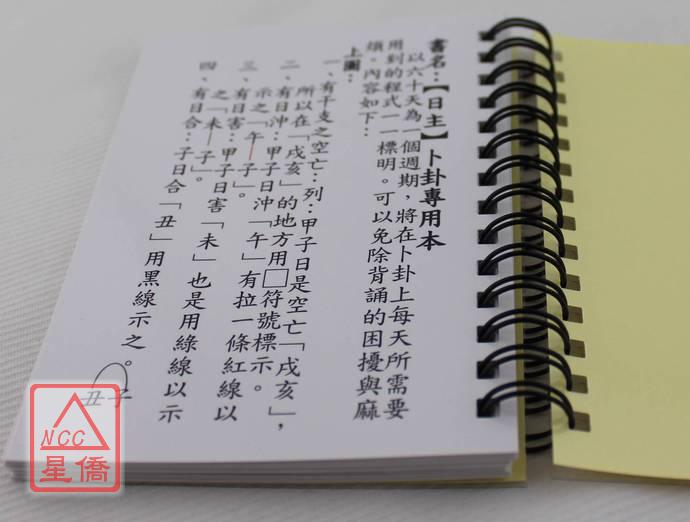 書名：【日主】卜卦專用本
以六十天為一個週期，將在卜卦上每天所需要
用到的程式一一標明。可以免除背誦的困擾與麻
煩。內容如下：
上圖：
一、有干支之空亡：列：甲子日是空亡「戌亥」，
所以在「戌亥」的地方用□符號標示。
二、有日沖：甲子日沖「午」有拉一條紅線以
示之「午—子」。
三、有日害：甲子日害「未」也是用綠線以示
之「未—子」。
四、有日合：子日合「丑」用黑線示之。
丑子
NCC
星僑